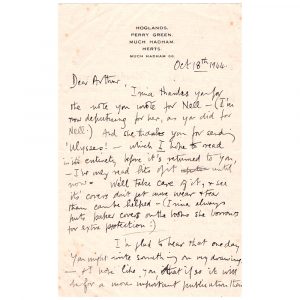 HOGLANDS,
PERRY GREEN,
MUCH HADHAM
HERTS.
MUCH HADHAM 66
Oct 18th 1964.
Dear Arthur,
Irina thanks you for
the note you wrote for Nell – (I'm
now deputising for her, as you did for
Nell!) And she thanks you for sending
'Ulysses' – which I hope to read
entirely before it's returned to you,
– I've only read bits of it until
now – Will take care of it, & see
it's covers don't get more wear & tear
than can be helped – (Irina always
puts paper covers on the books she borrows
for extra protection!)
I'm glad to hear that one day
you might write something on my drawings
– at least like you, that if so it will
be for a more important publication than